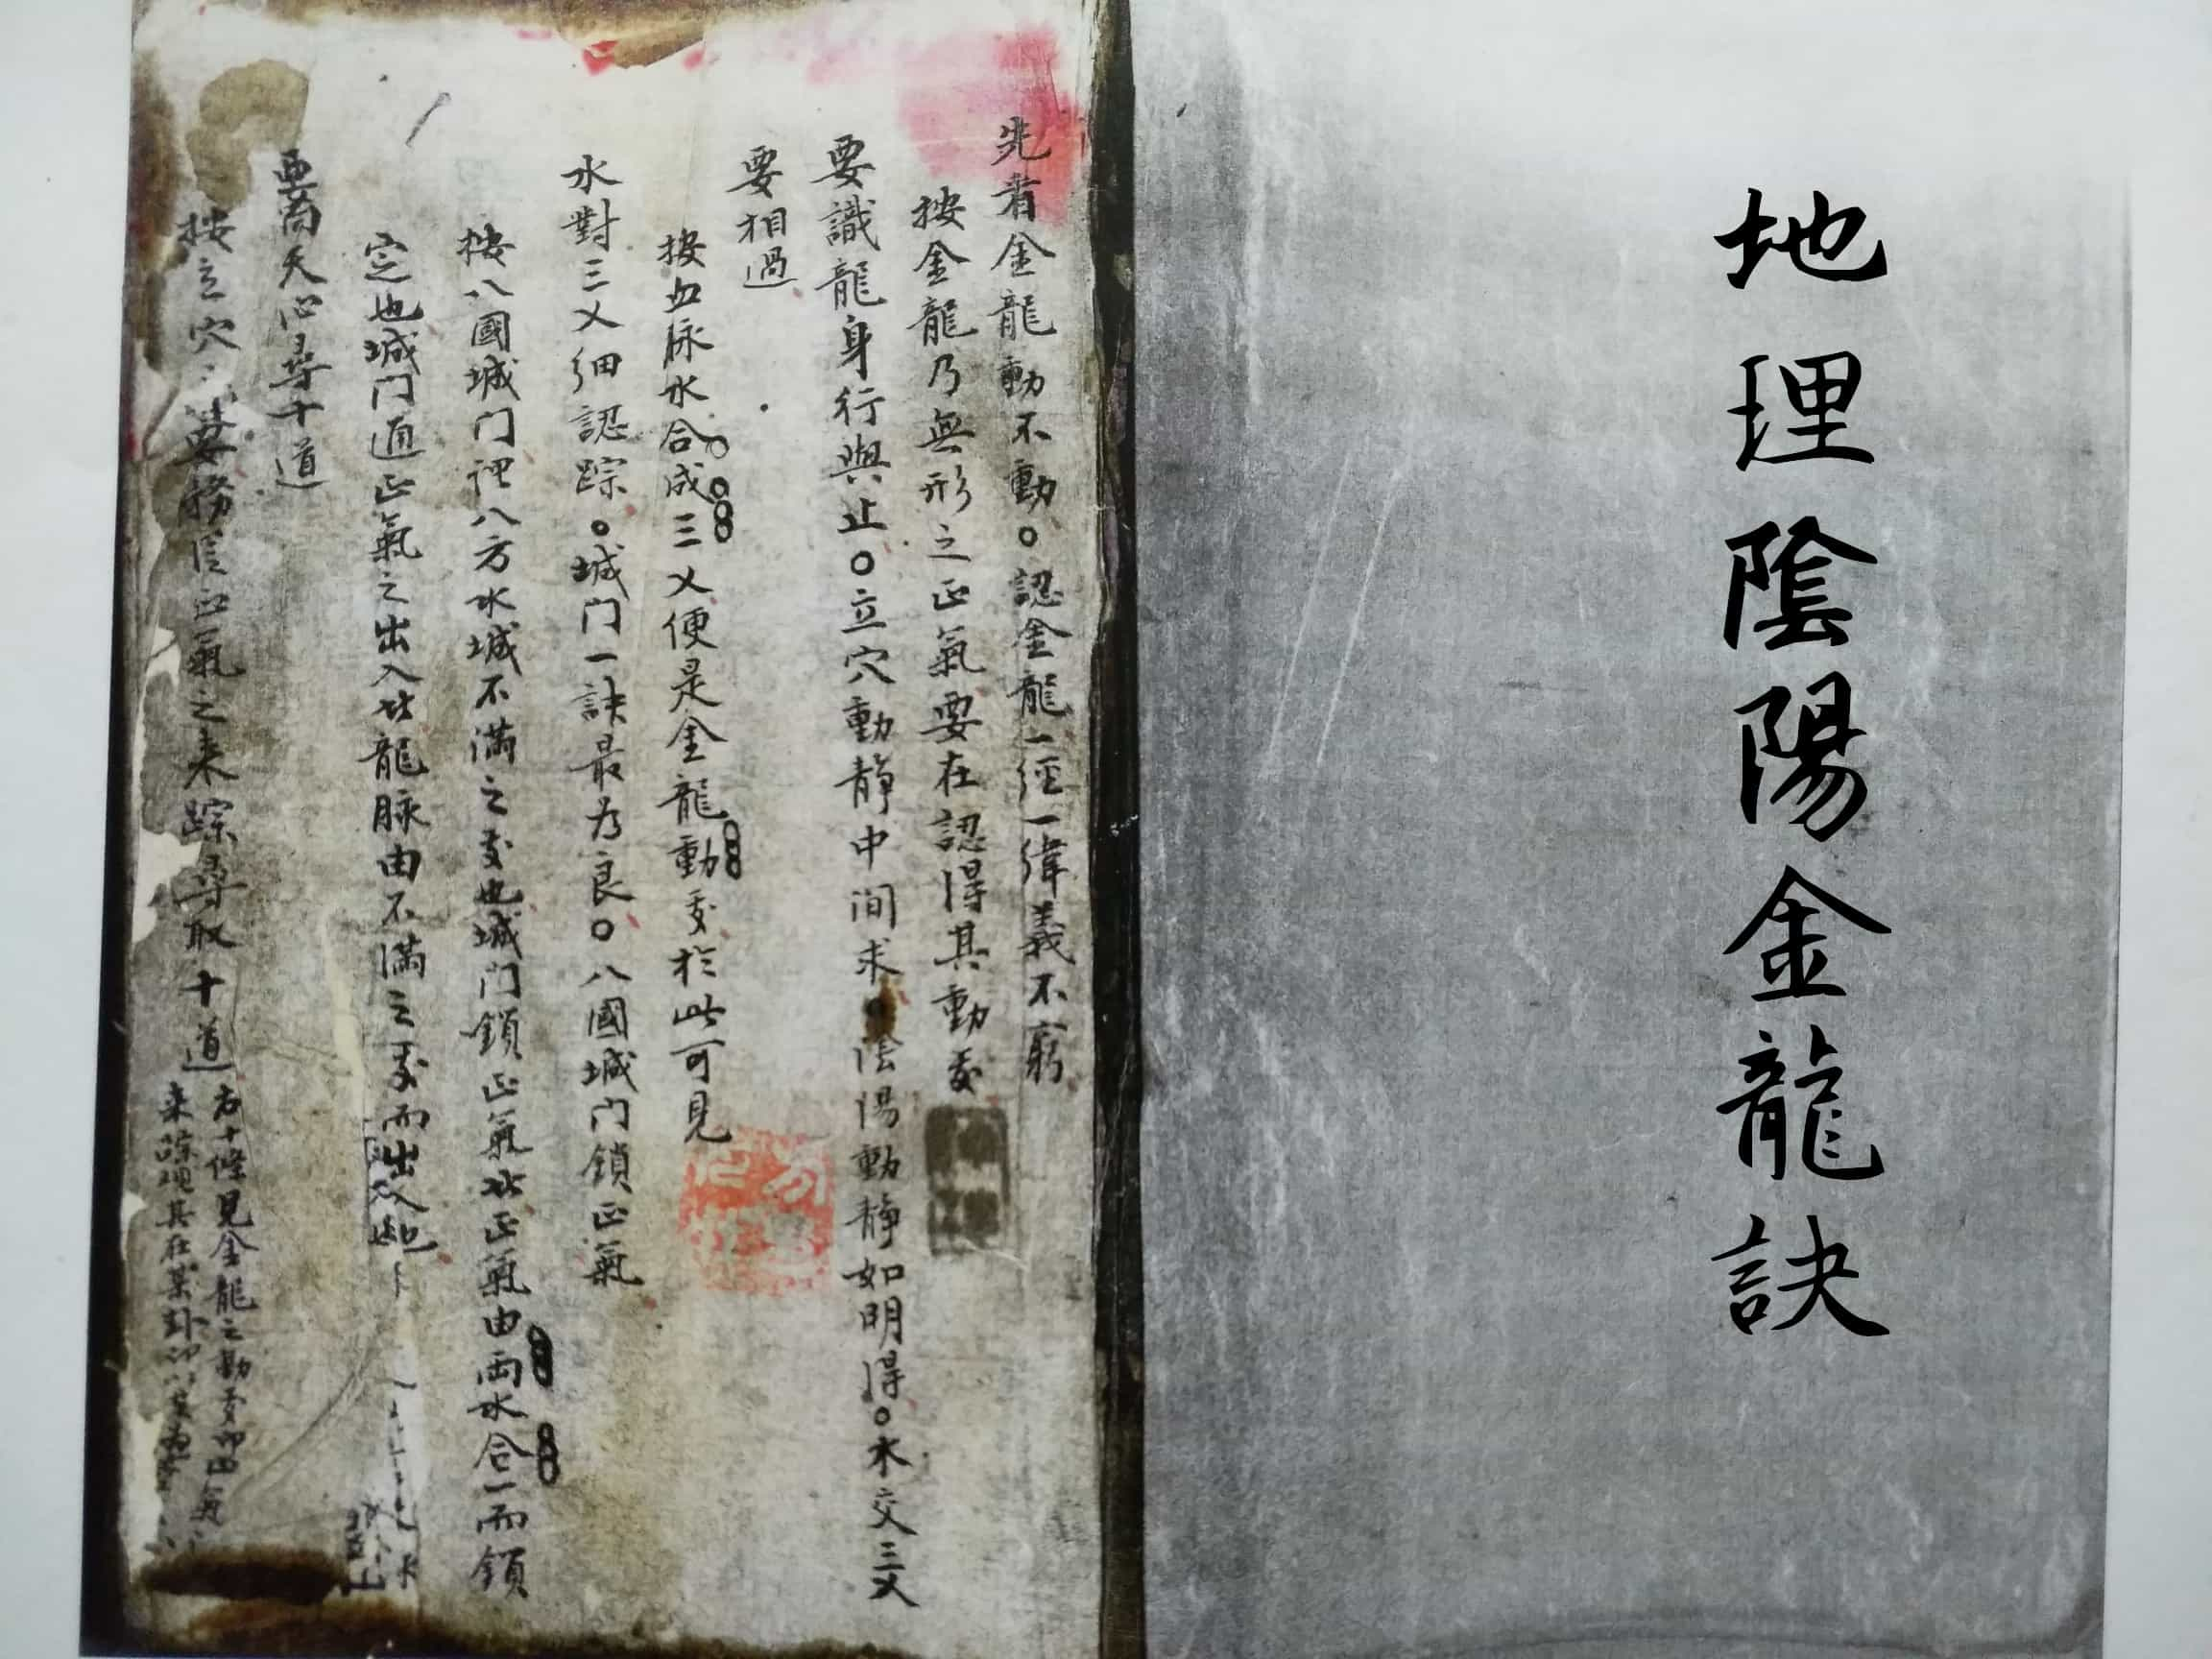 地理陰陽金龍訣
先看金龍動不動。認金龍一經一緯義不窮
按金龍乃無形之正氣要在認得其動處
要識龍身行與止。立穴動靜中间求。陰陽動靜如明得。水交三乂
要相過
按血脉水合成三乂便是金龍動處於此可見
水對三乂细認踪。城门一訣最为良。八國城门鎖正氣
按八國城门裡八方水城不滿之處也城门鎖正氣此正氣由両水合一而鎖
定也城门通正氣之出入此龍脉由不滿之處而出入也
要向天心尋十道
按立穴之要務由正氣之来踪尋取十道
右十條見金龍之動處
来踪現其在某卦